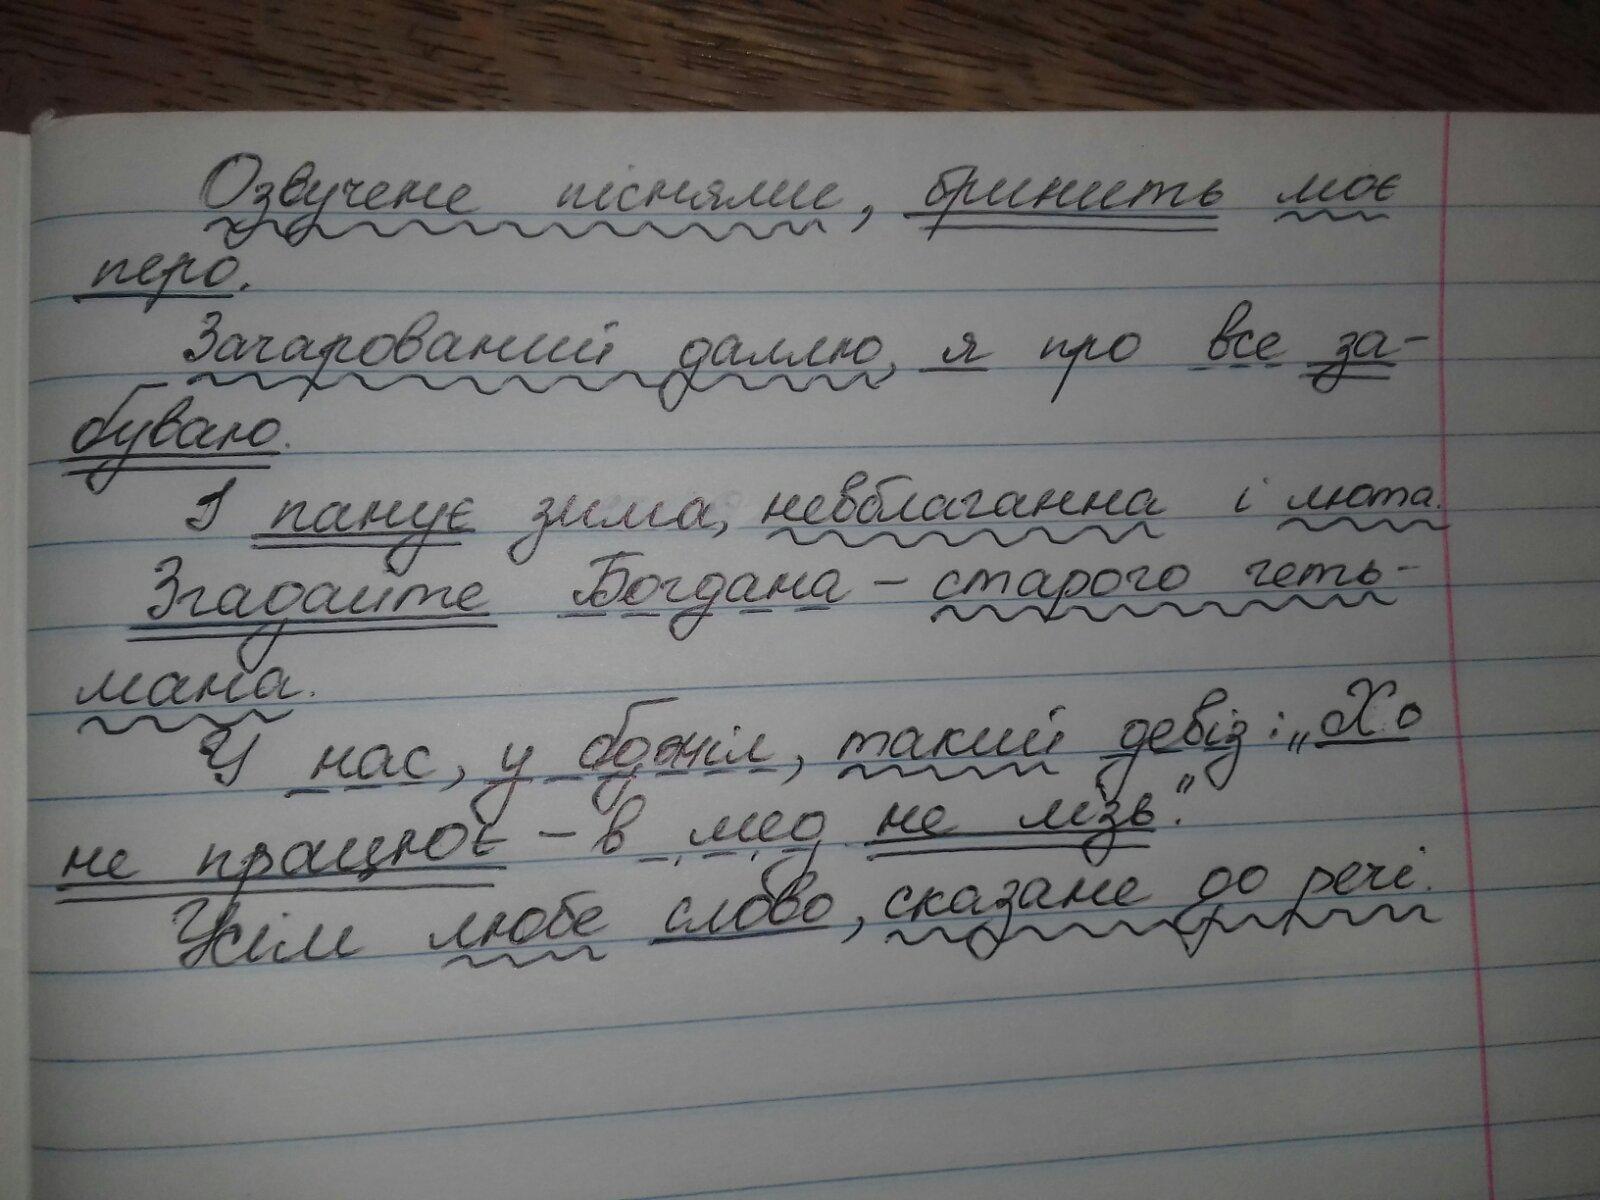 Озвучене піснями, бринить моє
перо.
Зачарований даллю, я про все за-
буваю.
І панує зима, невблаганна і люта.
Згадайте Богдана – старого геть-
мана.
У нас, у бджіл, такий девіз: „Хо
не працює – в мед не лізь."
Усім любе слово, сказане до речі.